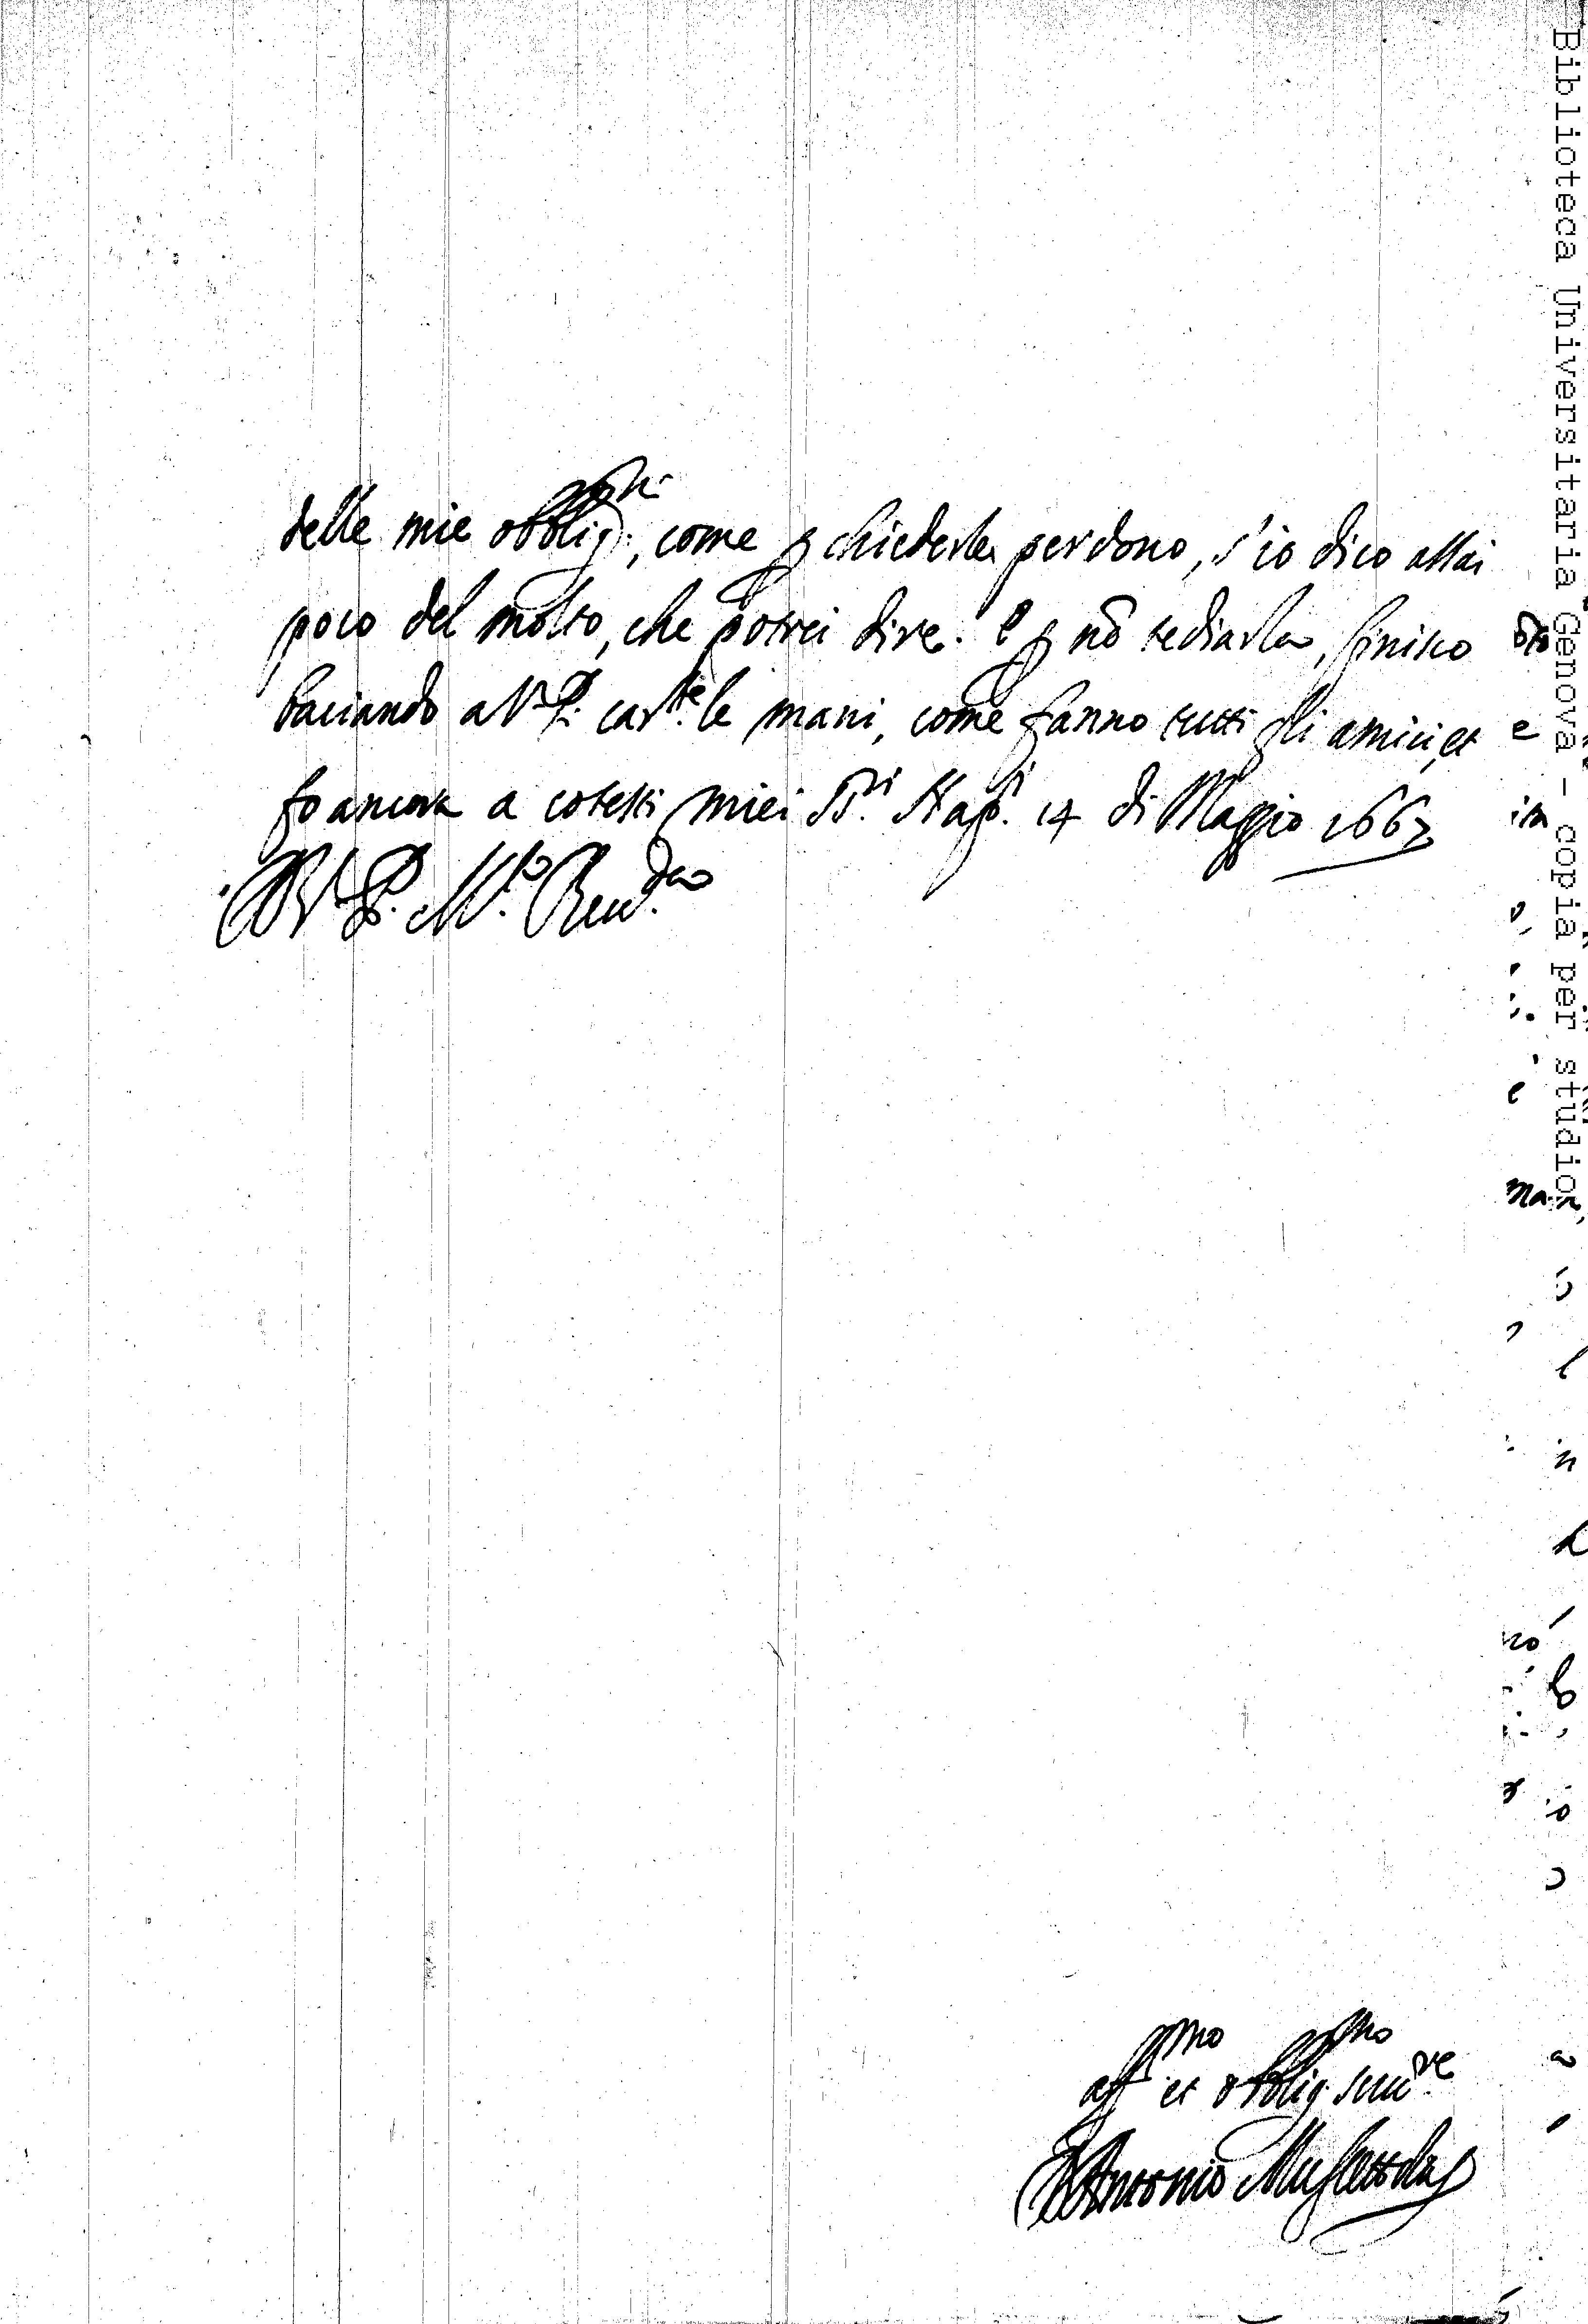 delle mie obblig.ni, come ꝑ chiederle perdono, s'io dico assai
poco del molto, che potrei dire. e ꝑ nō tediarla, finisco
baciando a V. P. car.te le mani, come fanno tutti gli amici, et
fo ancora a cotesti miei SS.ri Nap.i 14 di Maggio 1667
D. V. P. M.to Reu.da
aff.mo et obblig.mo seru.re
Antonio
Biblioteca Universitaria Genova - copia per studio